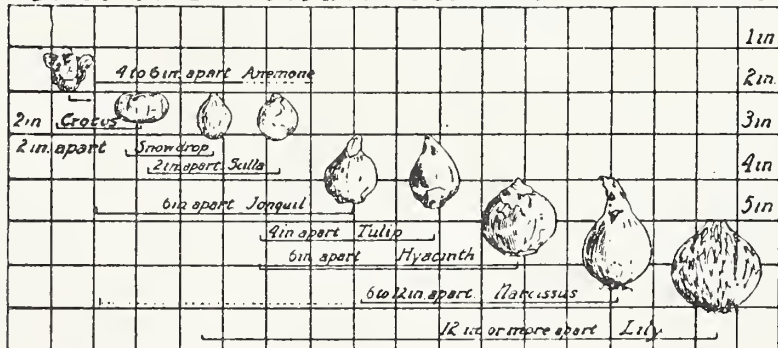 1 in
4 to 6 in. apart Anemone
2 in.
2 in Crocus
3 in
2 in. apart
Snowdrop
2 in. apart. Scilla
4 in
6 in apart Jonquil
5 in
4 in apart Tulip
6 in apart Hyacinth
6 to 12 in. apart. Narcissus
12 in. or more apart Lily